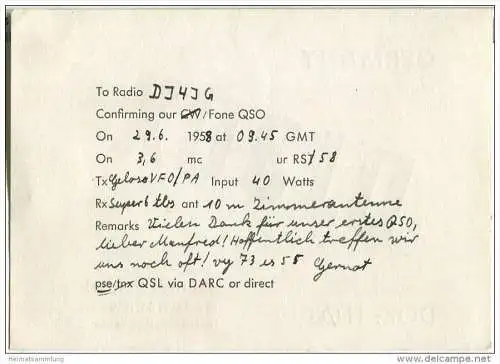 To Radio DJ4JG
Confirming our CW/Fone QSO
On 29.6. 1958 at 09.45 GMT
On 3,6 mc ur RST 58
Tx Geloso VFO/PA Input 40 Watts
Rx Super 6 tbs ant 10 m Zimmerantenne
Remarks Vielen Dank für unser erstes QSO,
lieber Manfred! Hoffentlich treffen wir
uns noch oft! vy 73 es 55 Gernot
pse/tnx QSL via DARC or direct
Heimatsammlung
www.delcampe.net